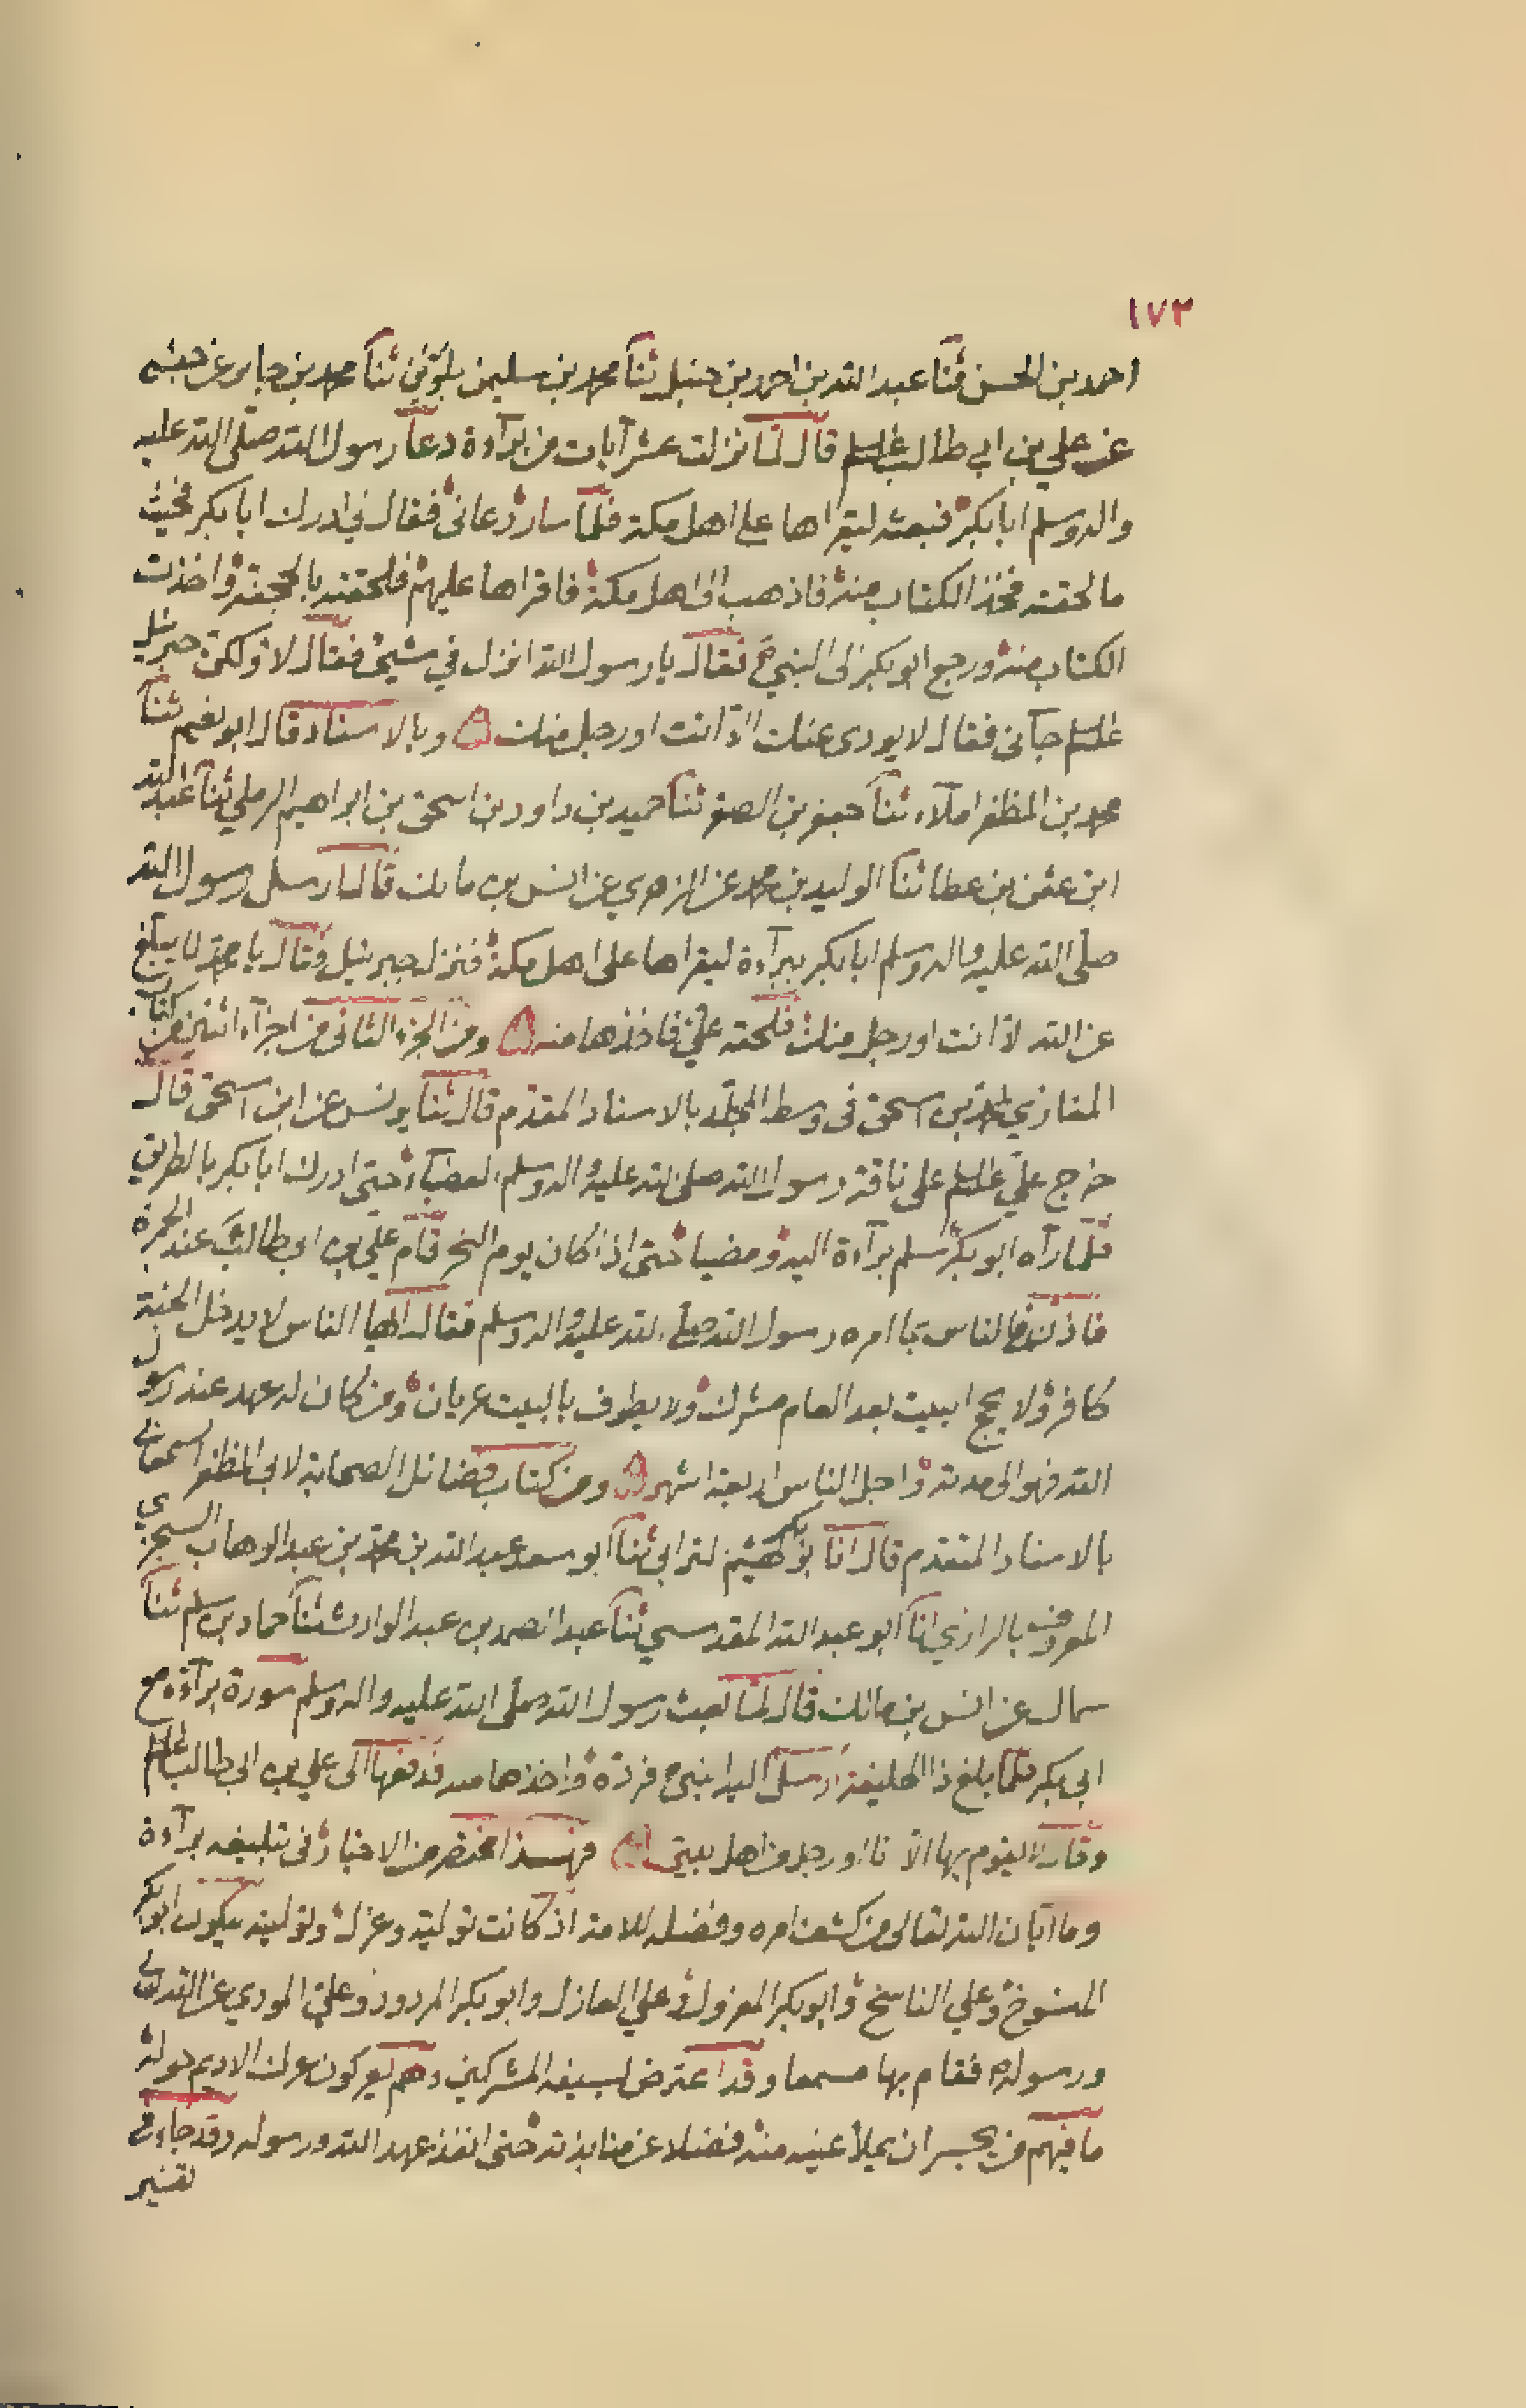 ١٧٣
احمد بن الحسن ثنا عبد الله بن احمد بن حنبل ثنا محمد بن سليمن بلوين ثنا محمد بن جابر عن حبشي
عن علي بن ابي طالب علسلم قال لما نزلت عشر آيات من برآءة دعا رسول الله صلى الله عليه
واله وسلم ابا بكر فبعثه ليقراها على اهل مكة فلما سار دعانى فقال لى ادرك ابا بكر فحيث
ما لحقته فخذ الكتاب منه فاذهب الى اهل مكة فاقراها عليهم فلحقته بالجحفة واخذت
الكتاب منه ورجع ابو بكر الى النبي فقال يا رسول الله انزل في شيئ فقال لا ولكن جبرئيل
علسلم جآنى فقال لا يودى عنك الا انت او رجل منك وبالاسناد قال ابو نعيم ثنا
محمد بن المظفر املآء ثنا جعفر بن الصقر ثنا حميد بن داود بن اسحق بن ابراهيم الرملي ثنا عبد الله
ابن عثمن بن عطا ثنا الوليد بن محمد عن الزهري عن انس بن مالك قال ارسل رسول الله
صلى الله عليه واله وسلم ابا بكر ببرآءة ليقراها على اهل مكة فنزل جبرئيل وقال يا محمد لا يبلغ
عن الله الا انت او رجل منك فلحقه علي فاخذها منه ومن الجزء الثانى من اجزآء اثنين من كتاب
المغازي لمحمد بن اسحق فى وسط المجلد بالاسناد المقدم قال ثنا يونس عن ابن اسحق قال
خرج علي علسلم على ناقة رسول الله صلى الله عليه واله وسلم العضبآء حتى ادرك ابا بكر بالطريق
فلما رآه ابو بكر سلم برآءة اليه ومضيا حتى اذا كان يوم النحر قام علي بن ابى طالب عند الجمرة
فاذن فى الناس بما امره رسول الله صلى الله عليه واله وسلم فقال ايها الناس لا يدخل الجنة
كافر ولا يحج البيت بعد العام مشرك ولا يطوف بالبيت عريان ومن كان له عهد عند رسول
الله فهو الى مدته واجل الناس اربعة اشهر ومن كتاب فضائل الصحابة لابى المظفر السمعانى
بالاسناد المتقدم قال انا ابو بكر الهيثم الترابى ثنا ابو سعد عبد الله بن محمد بن عبد الوهاب السجزي
المعروف بالرازي انا ابو عبد الله المقدسي ثنا عبد الصمد بن عبد الوارث ثنا حماد بن سلم ثنا
سماك عن انس بن مالك قال لما بعث رسول الله صلى الله عليه واله وسلم سورة برآءة مع
ابى بكر فلما بلغ ذا الحليفة ارسل اليه النبى فرده واخذها منه فدفعها الى علي بن ابى طالب علسلم
وقال لا يقوم بها الا انا او رجل من اهل بيتى فهذا مختصر من الاخبار فى تبليغه برآءة
وما ابان الله تعالى من كشف امره وفضله للامة اذ كانت توليته وعزله وتوليته ليكون ابو بكر
المنسوخ وعلي الناسخ وابو بكر المعزول وعلي العازل وابو بكر المردود وعلي المودي عن الله تعالى
ورسوله فقام بها مسمعا وقد اعترض لسيفه المشركين وهم يعركون عرك الاديم حوله
ما فيهم من يجسر ان يملأ عينيه منه فضلا عن منابذته حتى انفذ عهد الله ورسوله وقد جاء فى
تفسير